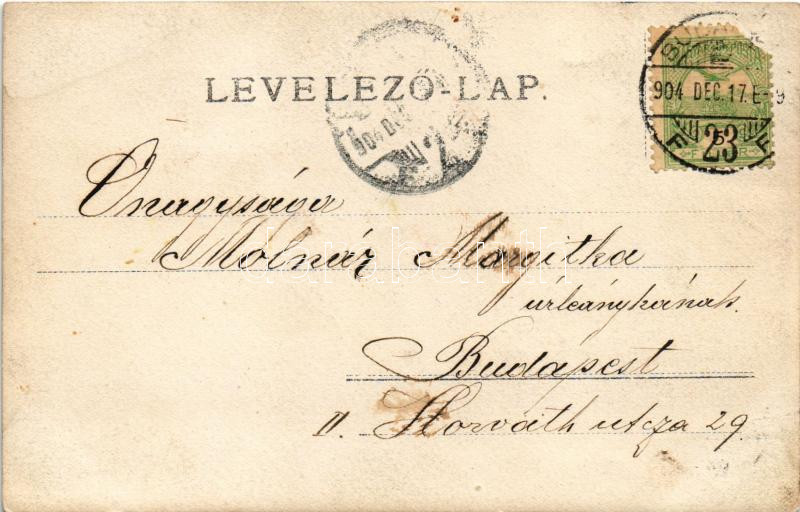 LEVELEZŐ-LAP.
904 DEC. 17. E 9
23
F F
904 DE
Őnagysága
Molnár Margitka
úrleánykának.
Budapest
II. Horváth utcza 29.